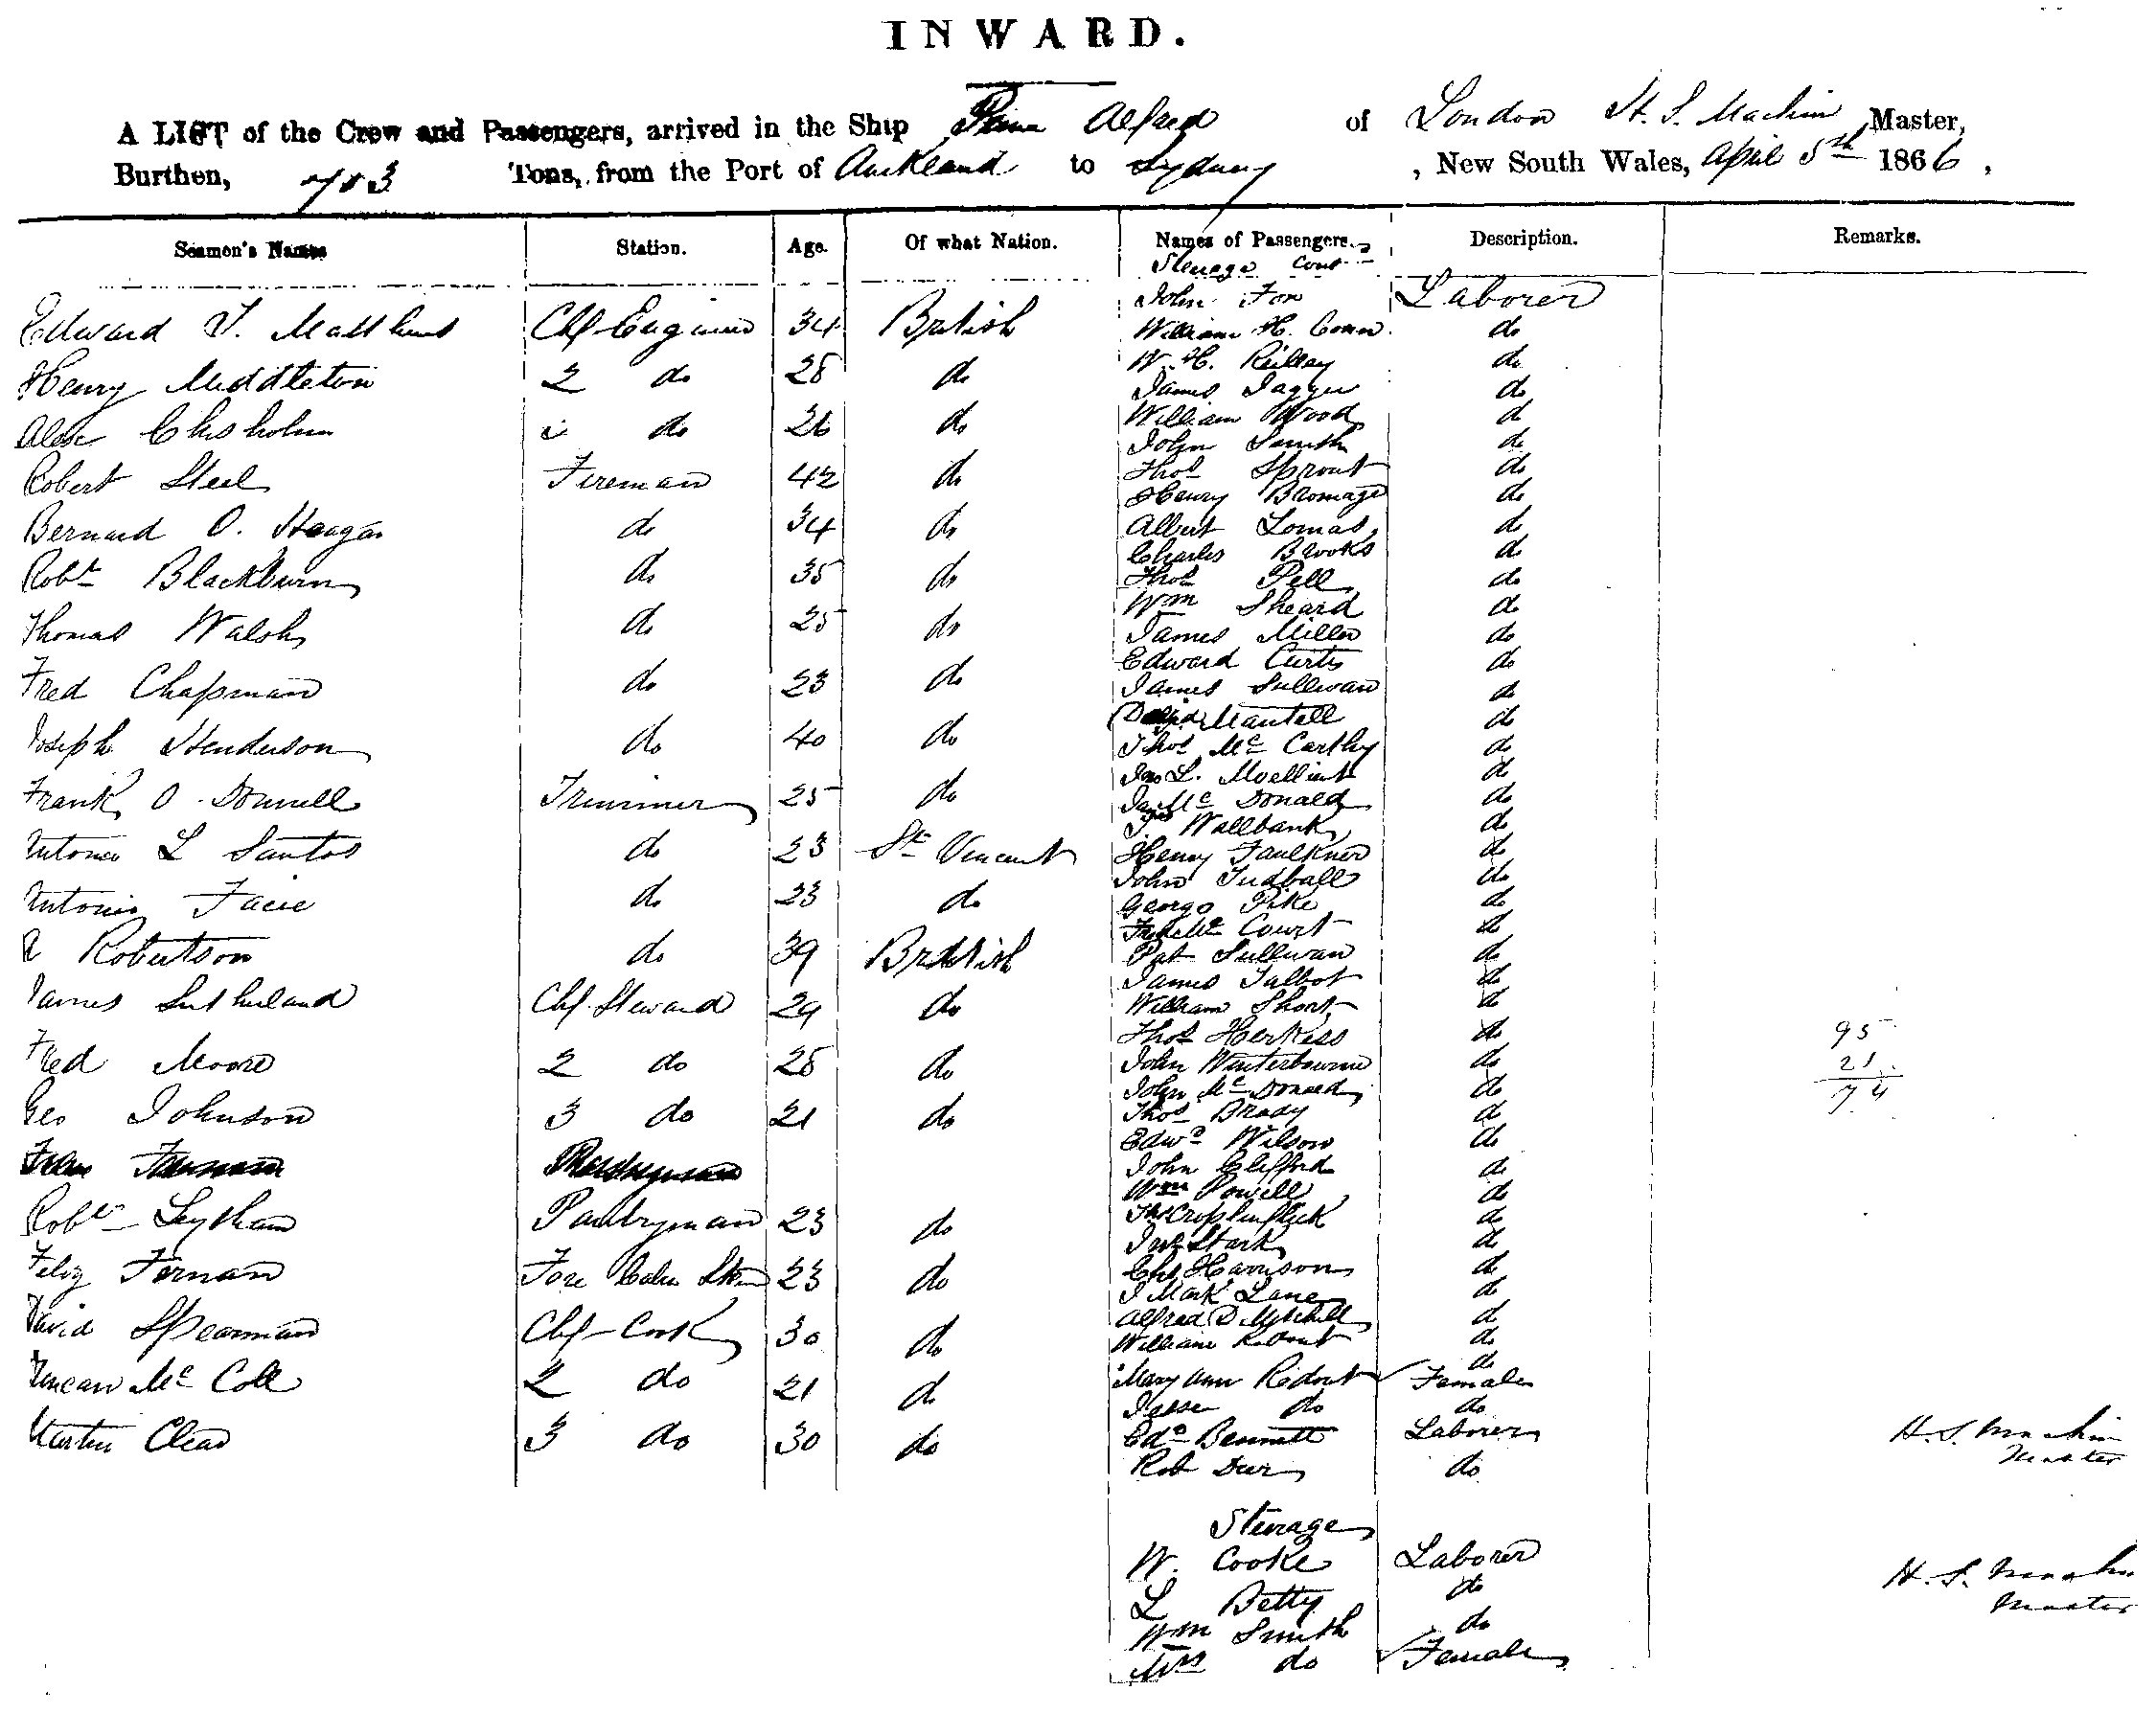 INWARD.
A LIST of the Crew and Passengers, arrived in the Ship Prince Alfred of London H. S. Machin Master,
Burthen, 703 Tons, from the Port of Auckland to Sydney, New South Wales, April 5th 1866,
Seamen's Names Station. Age. Of what Nation. Names of Passengers. Description. Remarks.
Steerage Cont
John Fox Laborer
Edward T. Matthews Chf Engineer 34 British
William H. do
Henry Middleton 2 do 28 do
W. H. Reilley do
James Jagger do
Alex Chisholm do 26 do
William Wood do
John Smith do
Robert Steel Fireman 42 do
Thos Sprout do
Henry Bromage do
Bernard O. Heagan do 34 do
Albert Lomas do
Charles Brooks do
Robt Blackburn do 35 do
Thos Pell do
Wm Sheard do
Thomas Walsh do 25 do
James Miller do
Edward Curtis do
Fred Chapman do 23 do
James Sullivan do
Mantell do
Joseph Henderson do 40 do
Thos Mc Carthy do
L. do
Frank O. Donnell Trimmer 25 do
Jas Mc Donald do
Wallbank do
Antonio L Santos do 23 St Vincent
Henry Faulkner do
John Tudball do
Antonio do 23 do
George Pike do
Court do
R Robertson do 39 British
Pat Sullivan do
James Talbot do
James Sutherland Chf Steward 29 do
William Short do
Thos Herkiss do 95
Fred Moore 2 do 28 do
John Winterbourne do 21
John Mc Donald do 74
Geo Johnson 3 do 21 do
Thos Brady do
Edwd Wilson do
John Clifford do
Wm Powell do
Robt Leytham Pantryman 23 do
do
Jno Stark do
Felix Fernan Fore Cabin 23 do
Chs Harrison do
J Mark Lane do
David Spearman Chf Cook 30 do
Alfred D Mitchell do
William Ridout do
do
Duncan Mc Coll 2 do 21 do
Mary Ann Ridout Female
Jesse do do
Martin Clear 3 do 30 do
Edd Bennett Laborer H. S. Machin
Rob do Master
Steerage
W. Cooke Laborer
L Betty do H. S. Machin
Wm Smith do Master
Mrs do Female